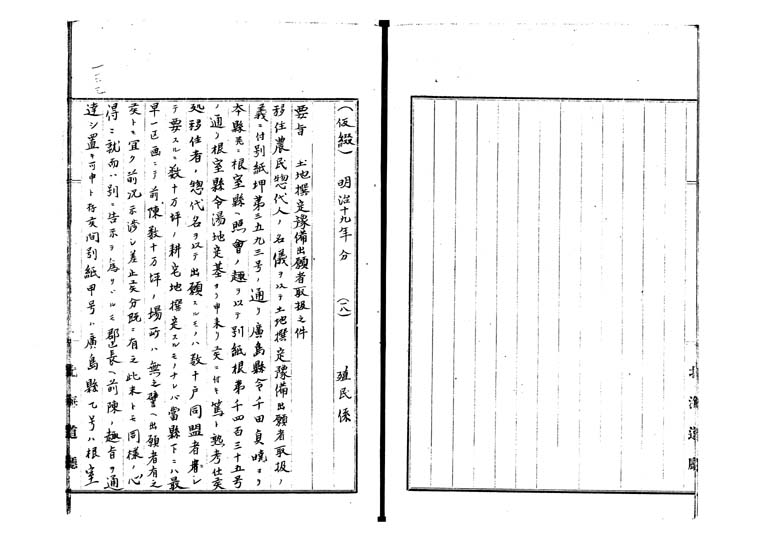 (仮綴) 明治十九年分 (一八) 殖民係
要旨 土地撰定豫備出願者取扱之件
移住農民惣代人ノ名儀ヲ以テ土地撰定豫備出願者取扱ノ
義ニ付別紙坤第三五九三号ノ通リ廣島縣令千田貞暁ヨリ
本縣并ニ根室縣ヘ照會ノ趣ヲ以テ別紙根第千四百三十五号
ノ通リ根室縣令湯地定基ヨリ申来リ候ニ付キ篤ト熟考仕候
処移住者ノ惣代名ヲ以テ出願スルモノハ数十戸同盟者ニシ
テ要スルニ数十万坪ノ耕宅地撰定スルモノナレバ當縣下ニハ最
早一区画ニテ前陳数十万坪ノ場所ハ無之譬ヘ出願者有之
候トモ宜ク前况示諭シ差止候分既ニ有之此末トモ同様ノ心
得ニ就而ハ別ニ告示ヲ為サバルモ郡区長ヘ前陳ノ趣旨ヲ通
達シ置キ可申ト存候間別紙甲号ハ廣島縣乙号ハ根室
北海道廳
北海道廳